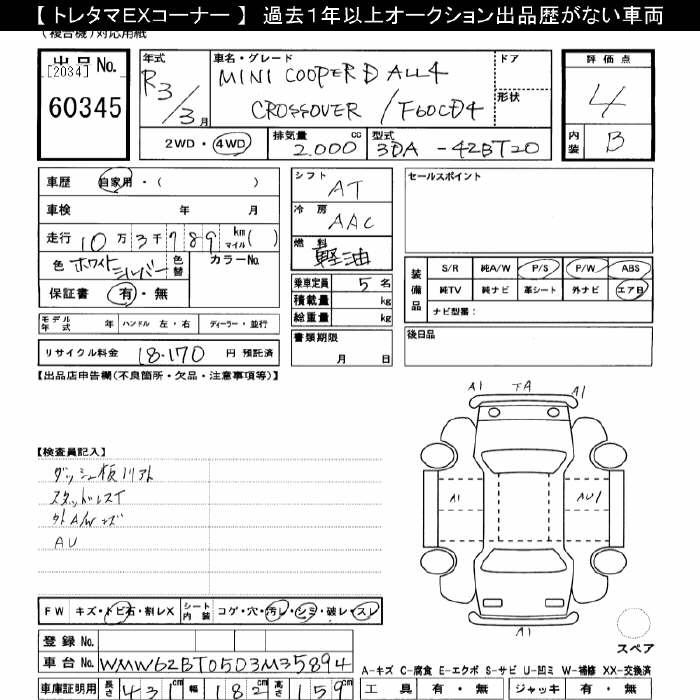 【トレタマEXコーナー】 過去1年以上オークション出品歴がない車両
(複合機)対応用紙
出品 No.
[2034]
60345
年式
R3/3月
車名・グレード
MINI COOPER D ALL4
CROSSOVER / F60CD4
ドア
形状
2WD・4WD
排気量 2.000 cc
型式 3DA - 42BT20
評価点
4
内装 B
車歴 自家用・( )
車検 年 月
走行 10万3千789 km マイル( )
色 ホワイト シルバー 色替 カラーNo.
保証書 有・無
シフト AT
冷房 AAC
燃料 軽油
乗車定員 5名
積載量 kg
総重量 kg
書類期限
月 日
セールスポイント
装備品
S/R 純A/W P/S P/W ABS
純TV 純ナビ 革シート 外ナビ エアB
ナビ型番:
後日品
モデル年式 年 ハンドル 左・右 ディーラー・並行
リサイクル料金 18.170 円 預託済
【出品店申告欄(不良箇所・欠品・注意事項等)】
【検査員記入】
スタッドレス
外A/Wキズ
AU
A1 TA A1
A1 AU1
A1
スペア
FW キズ・トビ石・割レX シート内装 コゲ・穴・汚レ・シミ・破レ・スレ
登録 No.
車台 No. WMW62BT0503M35894
車庫証明用 長さ 431cm 幅 182cm 高さ 159cm
A-キズ C-腐食 E-エクボ S-サビ U-凹ミ W-補修 XX-交換済
工具 有・無 ジャッキ 有・無